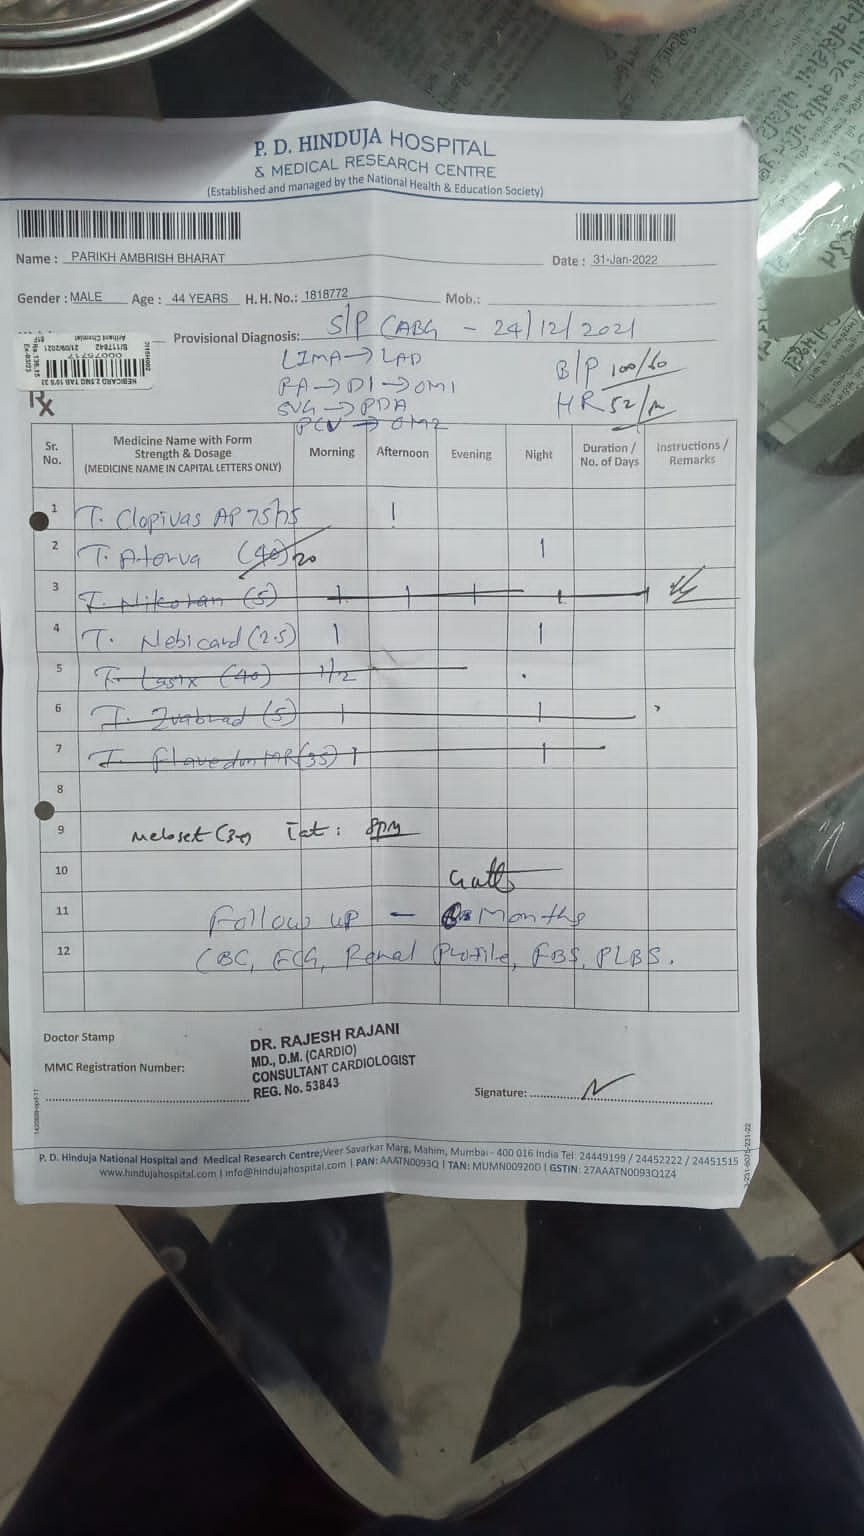 P. D. HINDUJA HOSPITAL
& MEDICAL RESEARCH CENTRE
(Established and managed by the National Health & Education Society)
Name : PARIKH AMBRISH BHARAT
Date : 31-Jan-2022
Gender : MALE Age : 44 YEARS H. H. No.: 1818772 Mob.:
Provisional Diagnosis: S/P CABG - 24/12/2021
LIMA → LAD
RA → D1 → OM1
SVG → PDA
→ OM2
B/P 100/60
HR 52/m
00075717
NEBICARD 2.5MG TAB 10'S
Rx
Sr. No. Medicine Name with Form Strength & Dosage (MEDICINE NAME IN CAPITAL LETTERS ONLY) Morning Afternoon Evening Night Duration / No. of Days Instructions / Remarks
1 T. Clopivas AP 75/75 1
2 T. Atorva (40) 20 1
3 T. Nikoran (5) 1 1 1 1
4 T. Nebicard (2.5) 1 1
5 T. Lasix (40) 1/2
6 T. Ivabrad (5) 1 1
7 T. Flavedon MR (35) 1 1
8
9 Meloset (3) 8pm
10
11 Follow up - Months
12 CBC, ECG, Renal Profile, FBS, PLBS.
Doctor Stamp
MMC Registration Number:
DR. RAJESH RAJANI
MD., D.M. (CARDIO)
CONSULTANT CARDIOLOGIST
REG. No. 53843
Signature:
P. D. Hinduja National Hospital and Medical Research Centre, Veer Savarkar Marg, Mahim, Mumbai - 400 016 India Tel 24449199 / 24452222 / 24451515
www.hindujahospital.com | info@hindujahospital.com | PAN: AAATN0093Q | TAN: MUMN00920D | GSTIN: 27AAATN0093Q1Z4